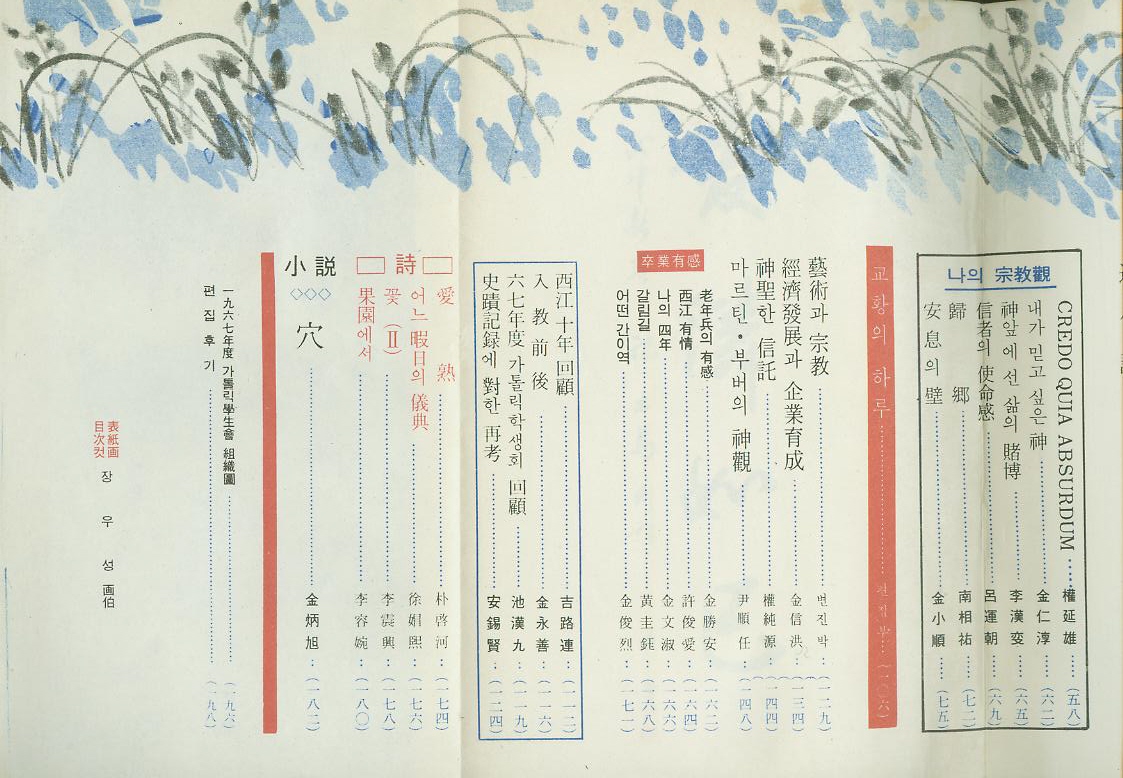 나의 宗教觀
CREDO QUIA ABSURDUM 權延雄 (五八)
내가 믿고 싶은 神 金仁淳 (六二)
神앞에 선 삶의 賭博 李漢奕 (六五)
信者의 使命感 呂運朝 (六九)
歸鄕 南相祐 (七二)
安息의 壁 金小順 (七五)
교황의 하루 편집부 (一〇六)
藝術과 宗教 변진박 (一二九)
經濟發展과 企業育成 金信洪 (一三四)
神聖한 信託 權純源 (一四四)
마르틴・부버의 神觀 尹順任 (一四八)
卒業有感
老年兵의 有感 金勝安 (一六二)
西江有情 許俊愛 (一六四)
나의 四年 金文淑 (一六六)
갈림길 黃圭鉦 (一六八)
어떤 간이역 金俊烈 (一七一)
西江十年回顧 吉路連 (一一二)
入教前後 金永善 (一一六)
六七年度 가톨릭학생회 回顧 池漢九 (一一九)
史蹟記録에 對한 再考 安錫賢 (一二四)
詩
愛熟 朴啓河 (一七四)
어느 暇日의 儀典 徐娟熙 (一七六)
꽃 (Ⅱ) 李震興 (一七八)
果園에서 李容婉 (一八〇)
小説
穴 金炳旭 (一八二)
一九六七年度 가톨릭學生會 組織圖 (一九六)
편집후기 (一九八)
表紙画
目次컷
장우성 画伯